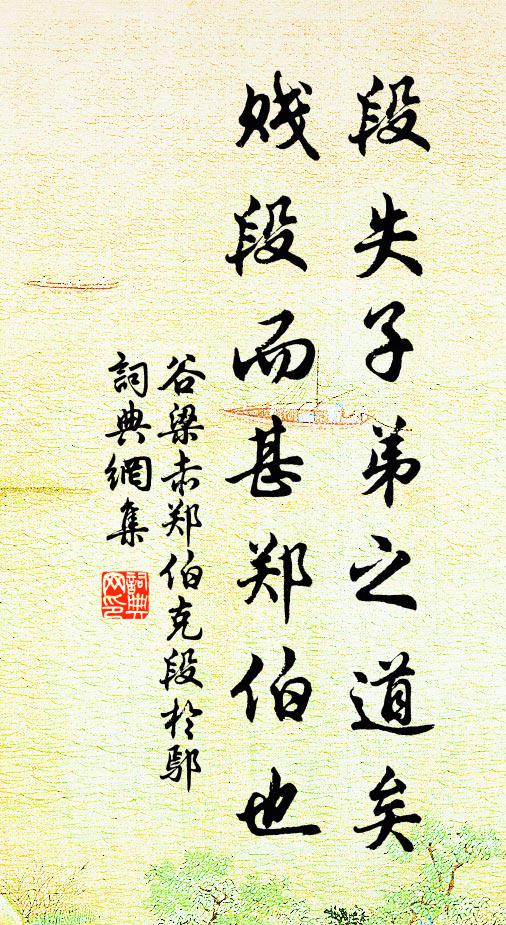 段失子弟之道矣
贱段而甚郑伯也
谷梁赤郑伯克段於鄢
詞典網集
詞典
网印